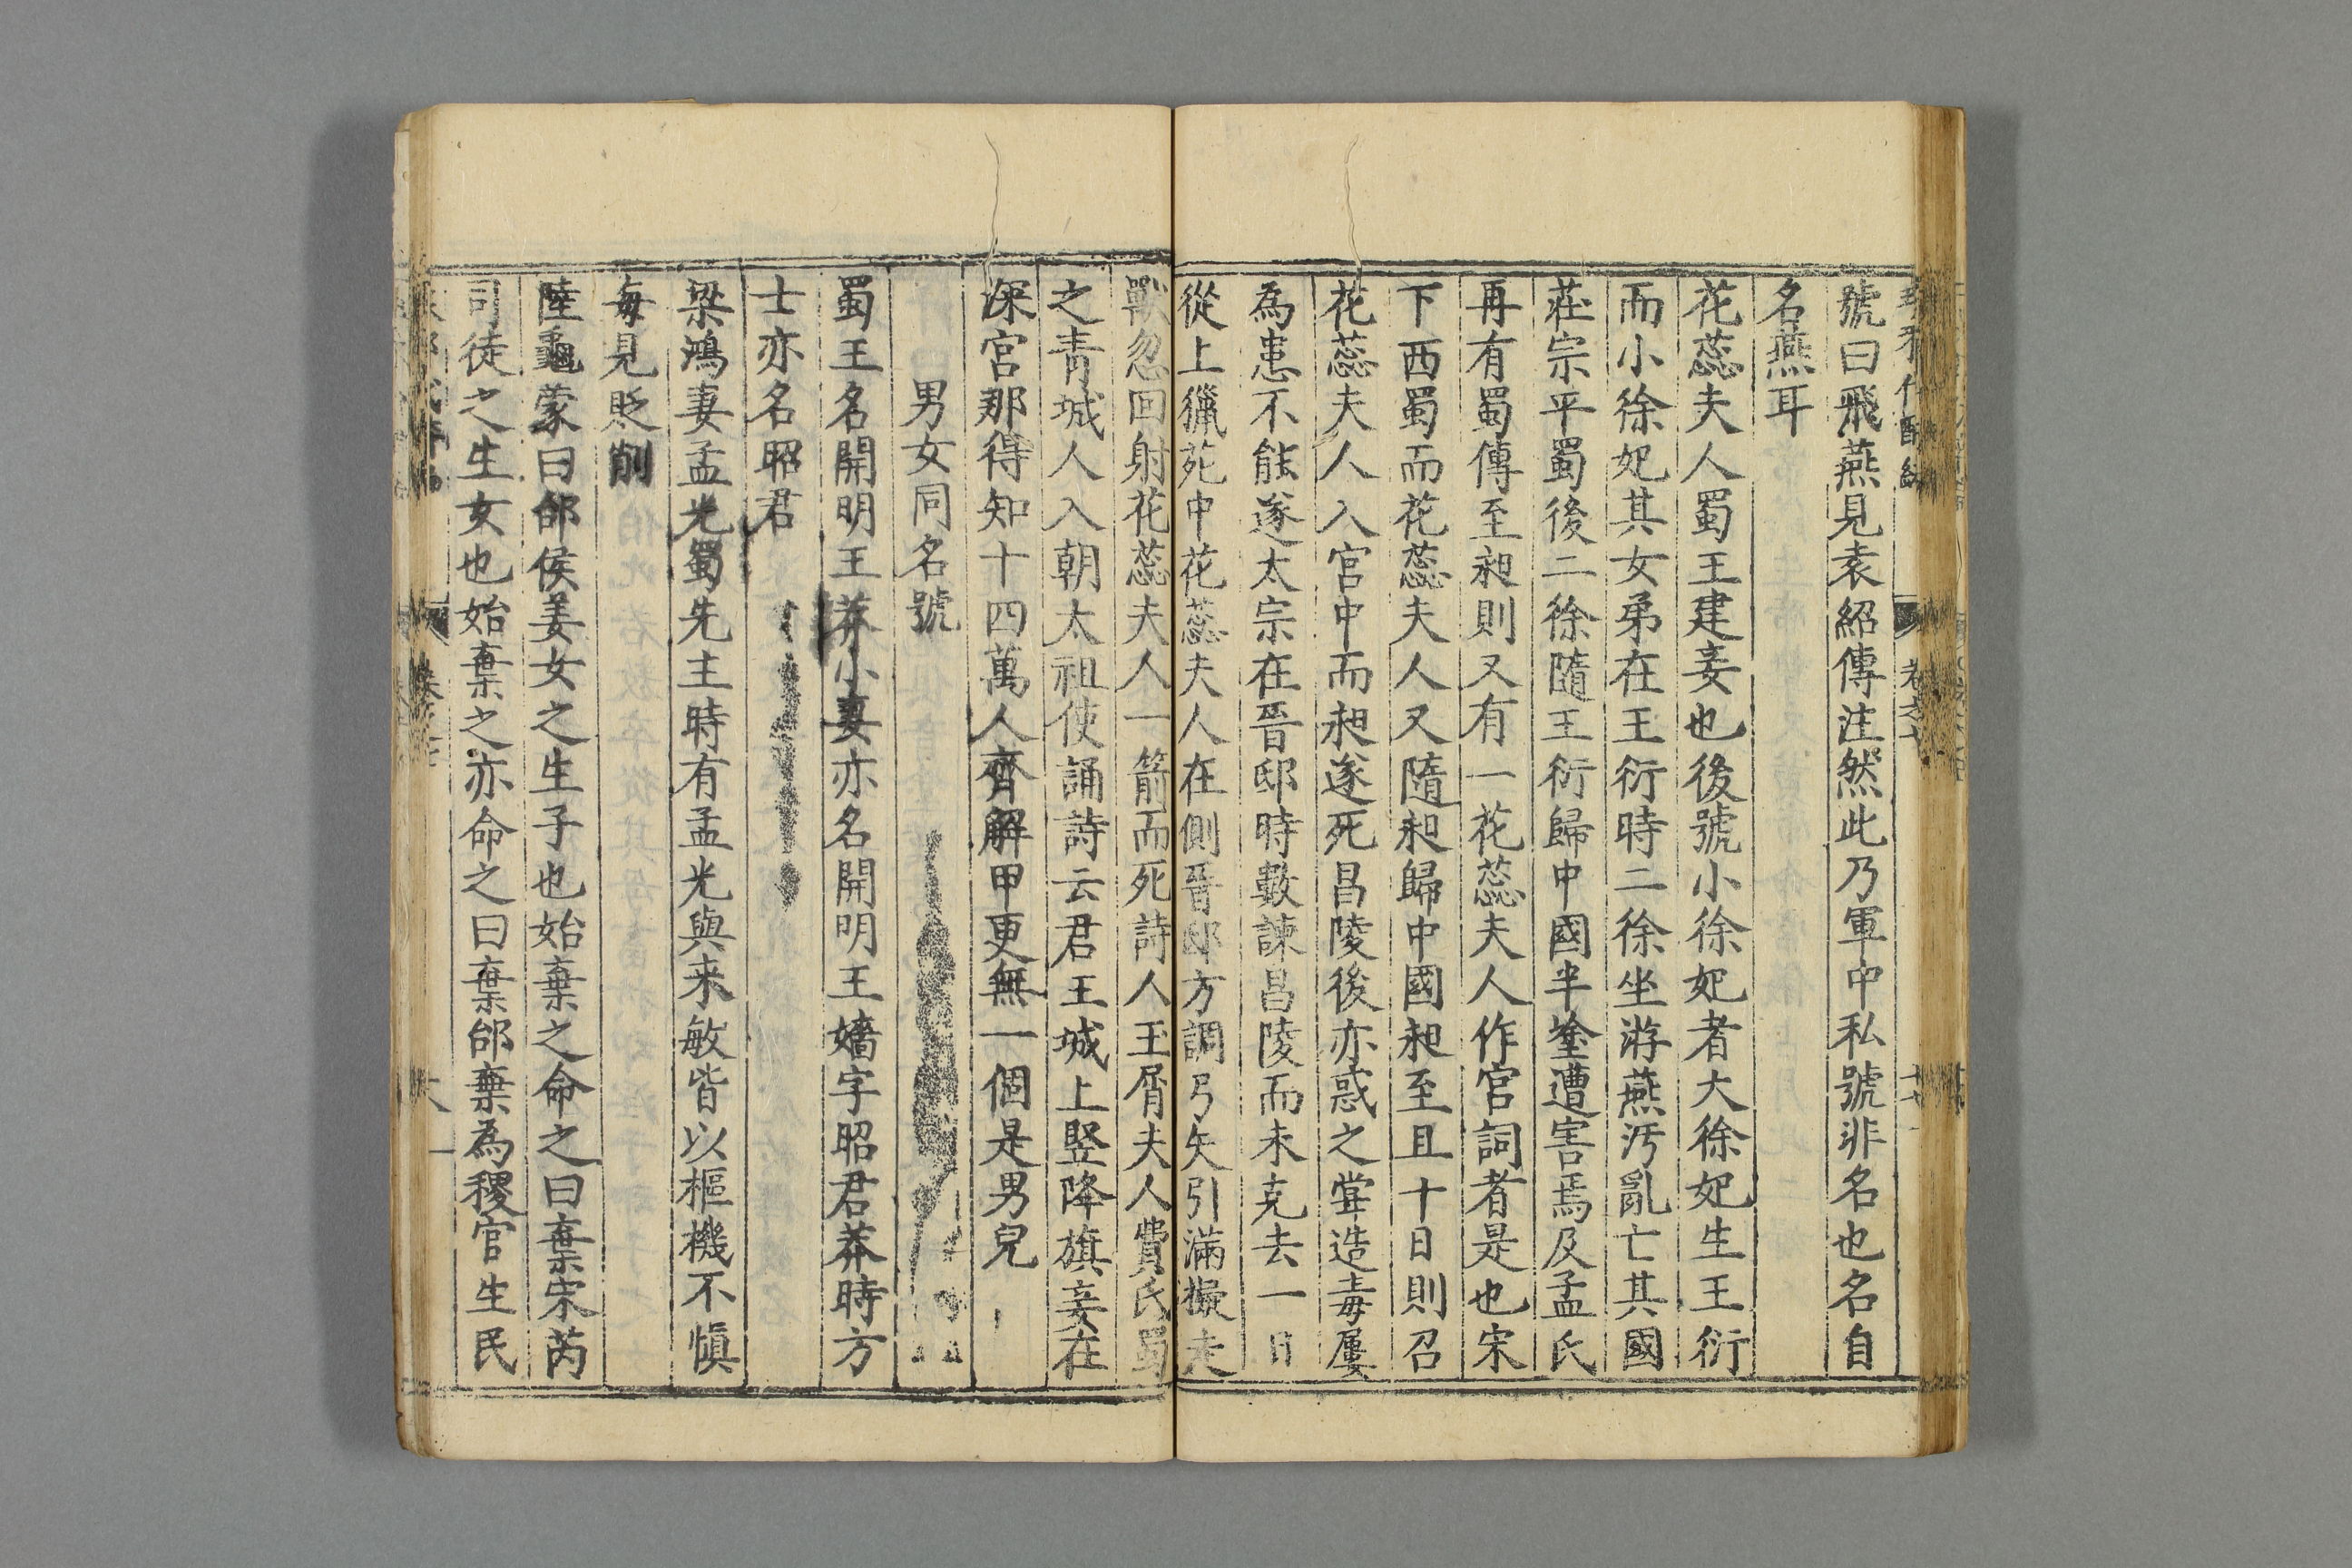 號曰飛燕見袁紹傳注然此乃軍中私號非名也名自
名燕耳
花蕊夫人蜀王建妾也後號小徐妃者大徐妃生王衍
而小徐妃其女弟在王衍時二徐坐游燕汚亂亡其國
莊宗平蜀後二徐隨王衍歸中國半塗遭害焉及孟氏
再有蜀傳至昶則又有一花蕊夫人作宫詞者是也宋
下西蜀而花蕊夫人又隨昶歸中國昶至且十日則召
花蕊夫人入宫中而昶遂死昌陵後亦惑之甞造毒屢
為患不能遂太宗在晉邸時數諫昌陵而未克去一日
從上獵苑中花蕊夫人在側晉邸方調弓矢引滿擬走
獸忽回射花蕊夫人一箭而死詩人玉屑夫人費氏蜀
之青城人入朝太祖使誦詩云君王城上竪降旗妾在
深宫那得知十四萬人齊解甲更無一個是男兒
男女同名號
蜀王名開明王莽小妻亦名開明王嬙字昭君莽時方
士亦名昭君
梁鴻妻孟光蜀先主時有孟光與来敏皆以樞機不慎
每見貶削
陸龜蒙曰邰侯姜女之生子也始棄之命之曰棄宋芮
司徒之生女也始棄之亦命之曰棄邰棄為稷官生民